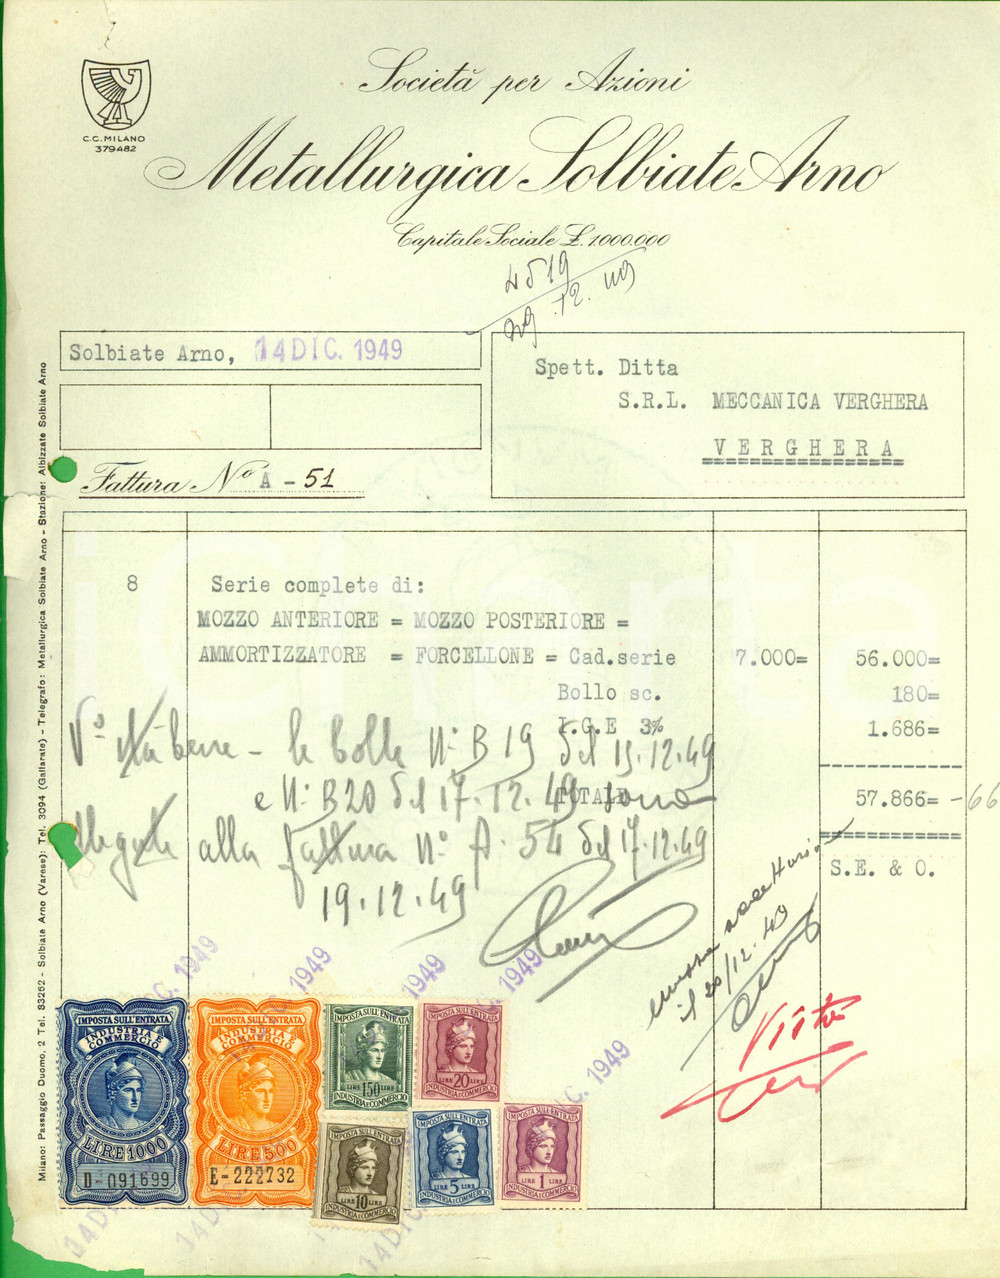 C.C. MILANO
379482
Società per Azioni
Metallurgica Solbiate Arno
Capitale Sociale £. 1.000.000
4519
29.12.49
Solbiate Arno, 14 DIC. 1949
Spett. Ditta
S.R.L. MECCANICA VERGHERA
VERGHERA
Fattura No A - 51
8 Serie complete di:
MOZZO ANTERIORE = MOZZO POSTERIORE =
AMMORTIZZATORE = FORCELLONE = Cad.serie 7.000= 56.000=
Bollo sc. 180=
I.G.E 3% 1.686=
TOTALE 57.866= -66
S.E. & O.
V° sta bene - le bolle N° B 19 del 15.12.49
e N° B20 del 17.12.49 sono
allegate alla fattura N° A. 54 del 17.12.49
19.12.49
il 20/12.49
Visto
14 DIC. 1949
IMPOSTA SULL'ENTRATA
INDUSTRIA E COMMERCIO
LIRE 1000
D-091699
IMPOSTA SULL'ENTRATA
INDUSTRIA E COMMERCIO
LIRE 500
E-222732
IMPOSTA SULL'ENTRATA
LIRE 150 LIRE
INDUSTRIA E COMMERCIO
IMPOSTA SULL'ENTRATA
LIRE 20 LIRE
INDUSTRIA E COMMERCIO
IMPOSTA SULL'ENTRATA
LIRE 10 LIRE
INDUSTRIA E COMMERCIO
IMPOSTA SULL'ENTRATA
LIRE 5 LIRE
INDUSTRIA E COMMERCIO
IMPOSTA SULL'ENTRATA
LIRE 1 LIRE
INDUSTRIA E COMMERCIO
Milano: Passaggio Duomo, 2 Tel. 83252 - Solbiate Arno (Varese): Tel. 3094 (Gallarate) - Telegrafo: Metallurgica Solbiate Arno - Stazione: Albizzate Solbiate Arno